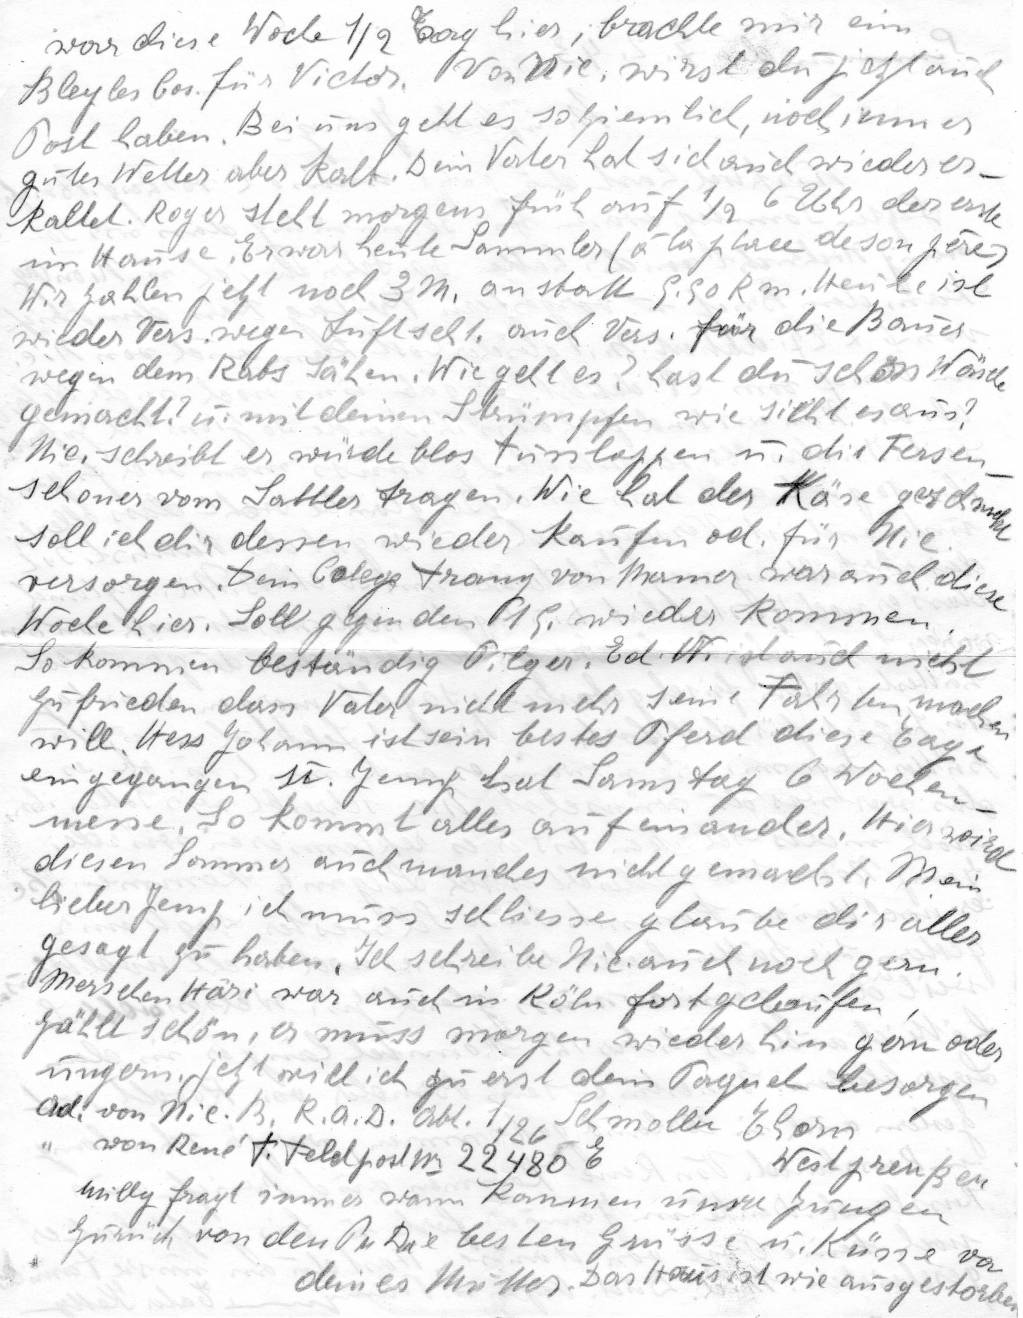 war diese Woche 1/2 Tag hier, brachte mir ein
Bleyles bos. für Victor. Von Nic. wirst du jetzt auch
Post haben. Bei uns geht es so ziemlich, noch immer
gutes Wetter aber kalt. Dein Vater hat sich auch wieder er-
kaltet. Roger steht morgens früh auf 1/2 6 Uhr der erste
im Hause. Er war heute Sammler (à la place de son père)
Wir zahlen jetzt noch 3 M. anstatt Rm. Heute ist
wieder Vers. wegen Luftsch. auch Vers. für die Bauer
wegen dem Rabs sähen. Wie geht es? hast du schon Wäsche
gemacht? u. mit deinen Strümpfen wie sieht es aus?
Nic. schreibt er würde blos Fusslappen u. die Fersen-
schoner vom Sattler tragen. Wie hat der Käse geschmeckt
soll ich dir dessen wieder kaufen od. für Nic.
versorgen. Dein Colege Franz von Mamer war auch diese
Woche hier. Soll gegen den wieder kommen.
So kommen beständig Pilger. Ed. W. ist auch nicht
zufrieden dass Vater nicht mehr seine Fahrten machen
will. Hess Johann ist sein bestes Pferd diese Tage
eingegangen u. Jemp hat Samstag 6 Wochen-
messe. So kommt alles aufeinander. Hier wird
diesen Sommer auch manches nicht gemacht. Mein
lieber Jemp ich muss schliesse glaube dir alles
gesagt zu haben. Ich schreibe Nic. auch noch gern.
Merschen Häri war auch in Köln fortgelaufen,
zählt schön, er muss morgen wieder hin gern oder
ungern. jetzt will ich zu erst dein Paquet besorgen
Ad. von Nic. B. R.A.D. Abt. 1/126 Schmolln Thorn
" von René F. Feldpost Nr 22480 E Westpreußen
Milly fragt immer wann kommen unsre Jungen
zurück von den Die besten Grüsse u. Küsse von
deines Mutter. Das Haus ist wie ausgestorben